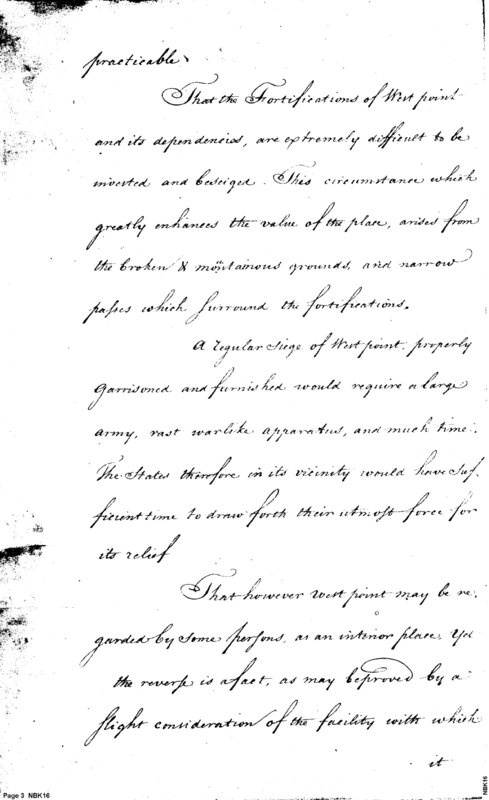 practicable.
That the Fortifications of West point
and its dependencies, are extremely difficult to be
invested and beseiged. This circumstance which
greatly enhances the value of the place, arises from
the broken & mountainous grounds, and narrow
passes which surround the fortifications.
A regular Siege of West point, properly
Garrisoned and furnished would require a large
army, vast warlike apparatus, and much time.
The States therefore in its vicinity would have Suf-
ficient time to draw forth their utmost force for
its relief
That however West point may be re-
garded by some persons, as an interior place, Yet
the reverse is a fact, as may be proved by a
slight consideration of the facility with which
it
Page 3 NBK16
NBK16